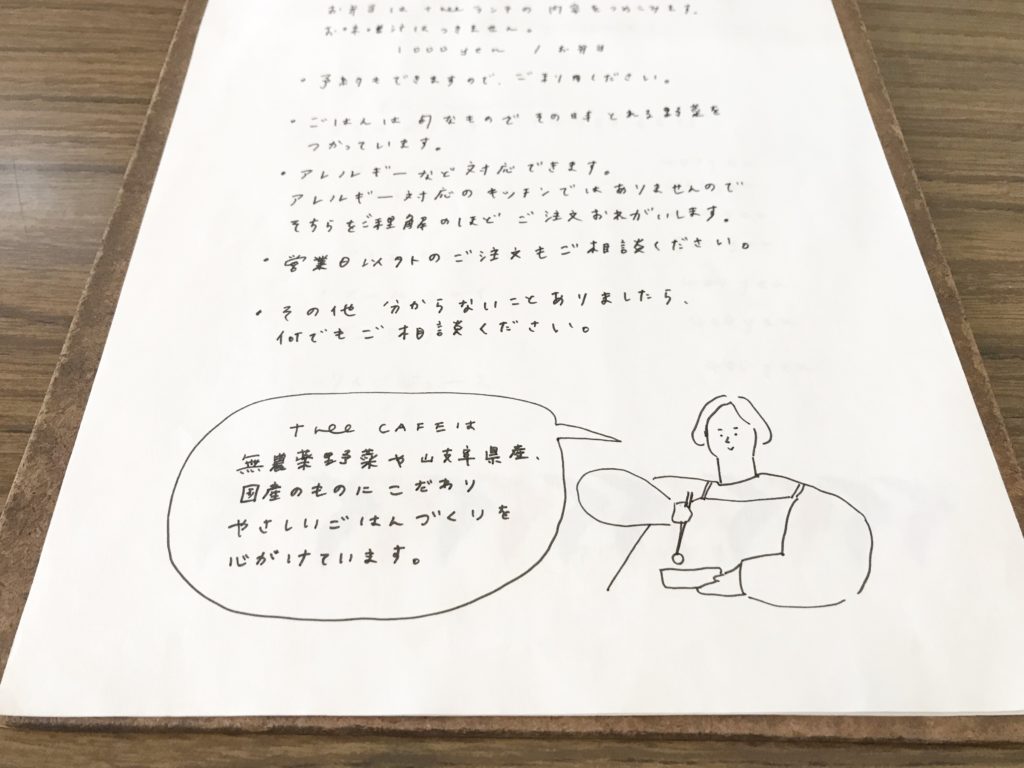 お弁当は threeランチの 内容をつめこみます。
お味噌汁はつきません。
1000 yen / お弁当
・予約もできますので、ご利用ください。
・ごはんは 旬なもので その日 とれる野菜を
つかっています。
・アレルギーなど 対応できます。
アレルギー対応のキッチンではありませんので
そちらをご理解のほど ご注文おねがいします。
・営業日以外のご注文もご相談ください。
・その他 分からないことありましたら、
何でもご相談ください。
three CAFEは
無農薬野菜や岐阜県産、
国産のものにこだわり
やさしいごはんづくりを
心がけています。